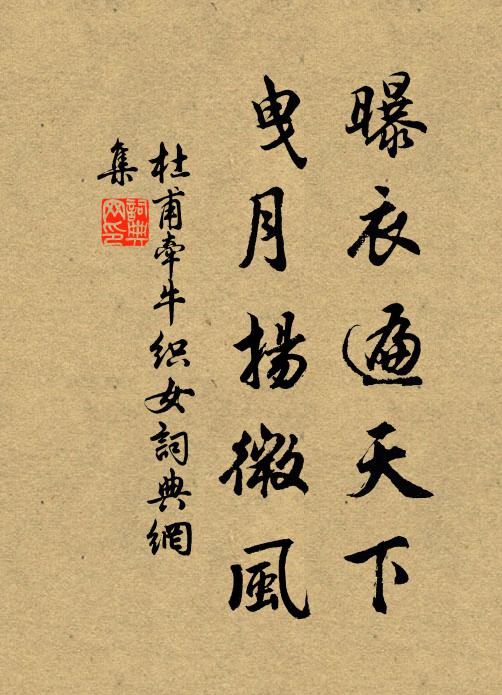 曝衣遍天下
曳月揚微風
杜甫牽牛织女詞典網
集
詞典
网印